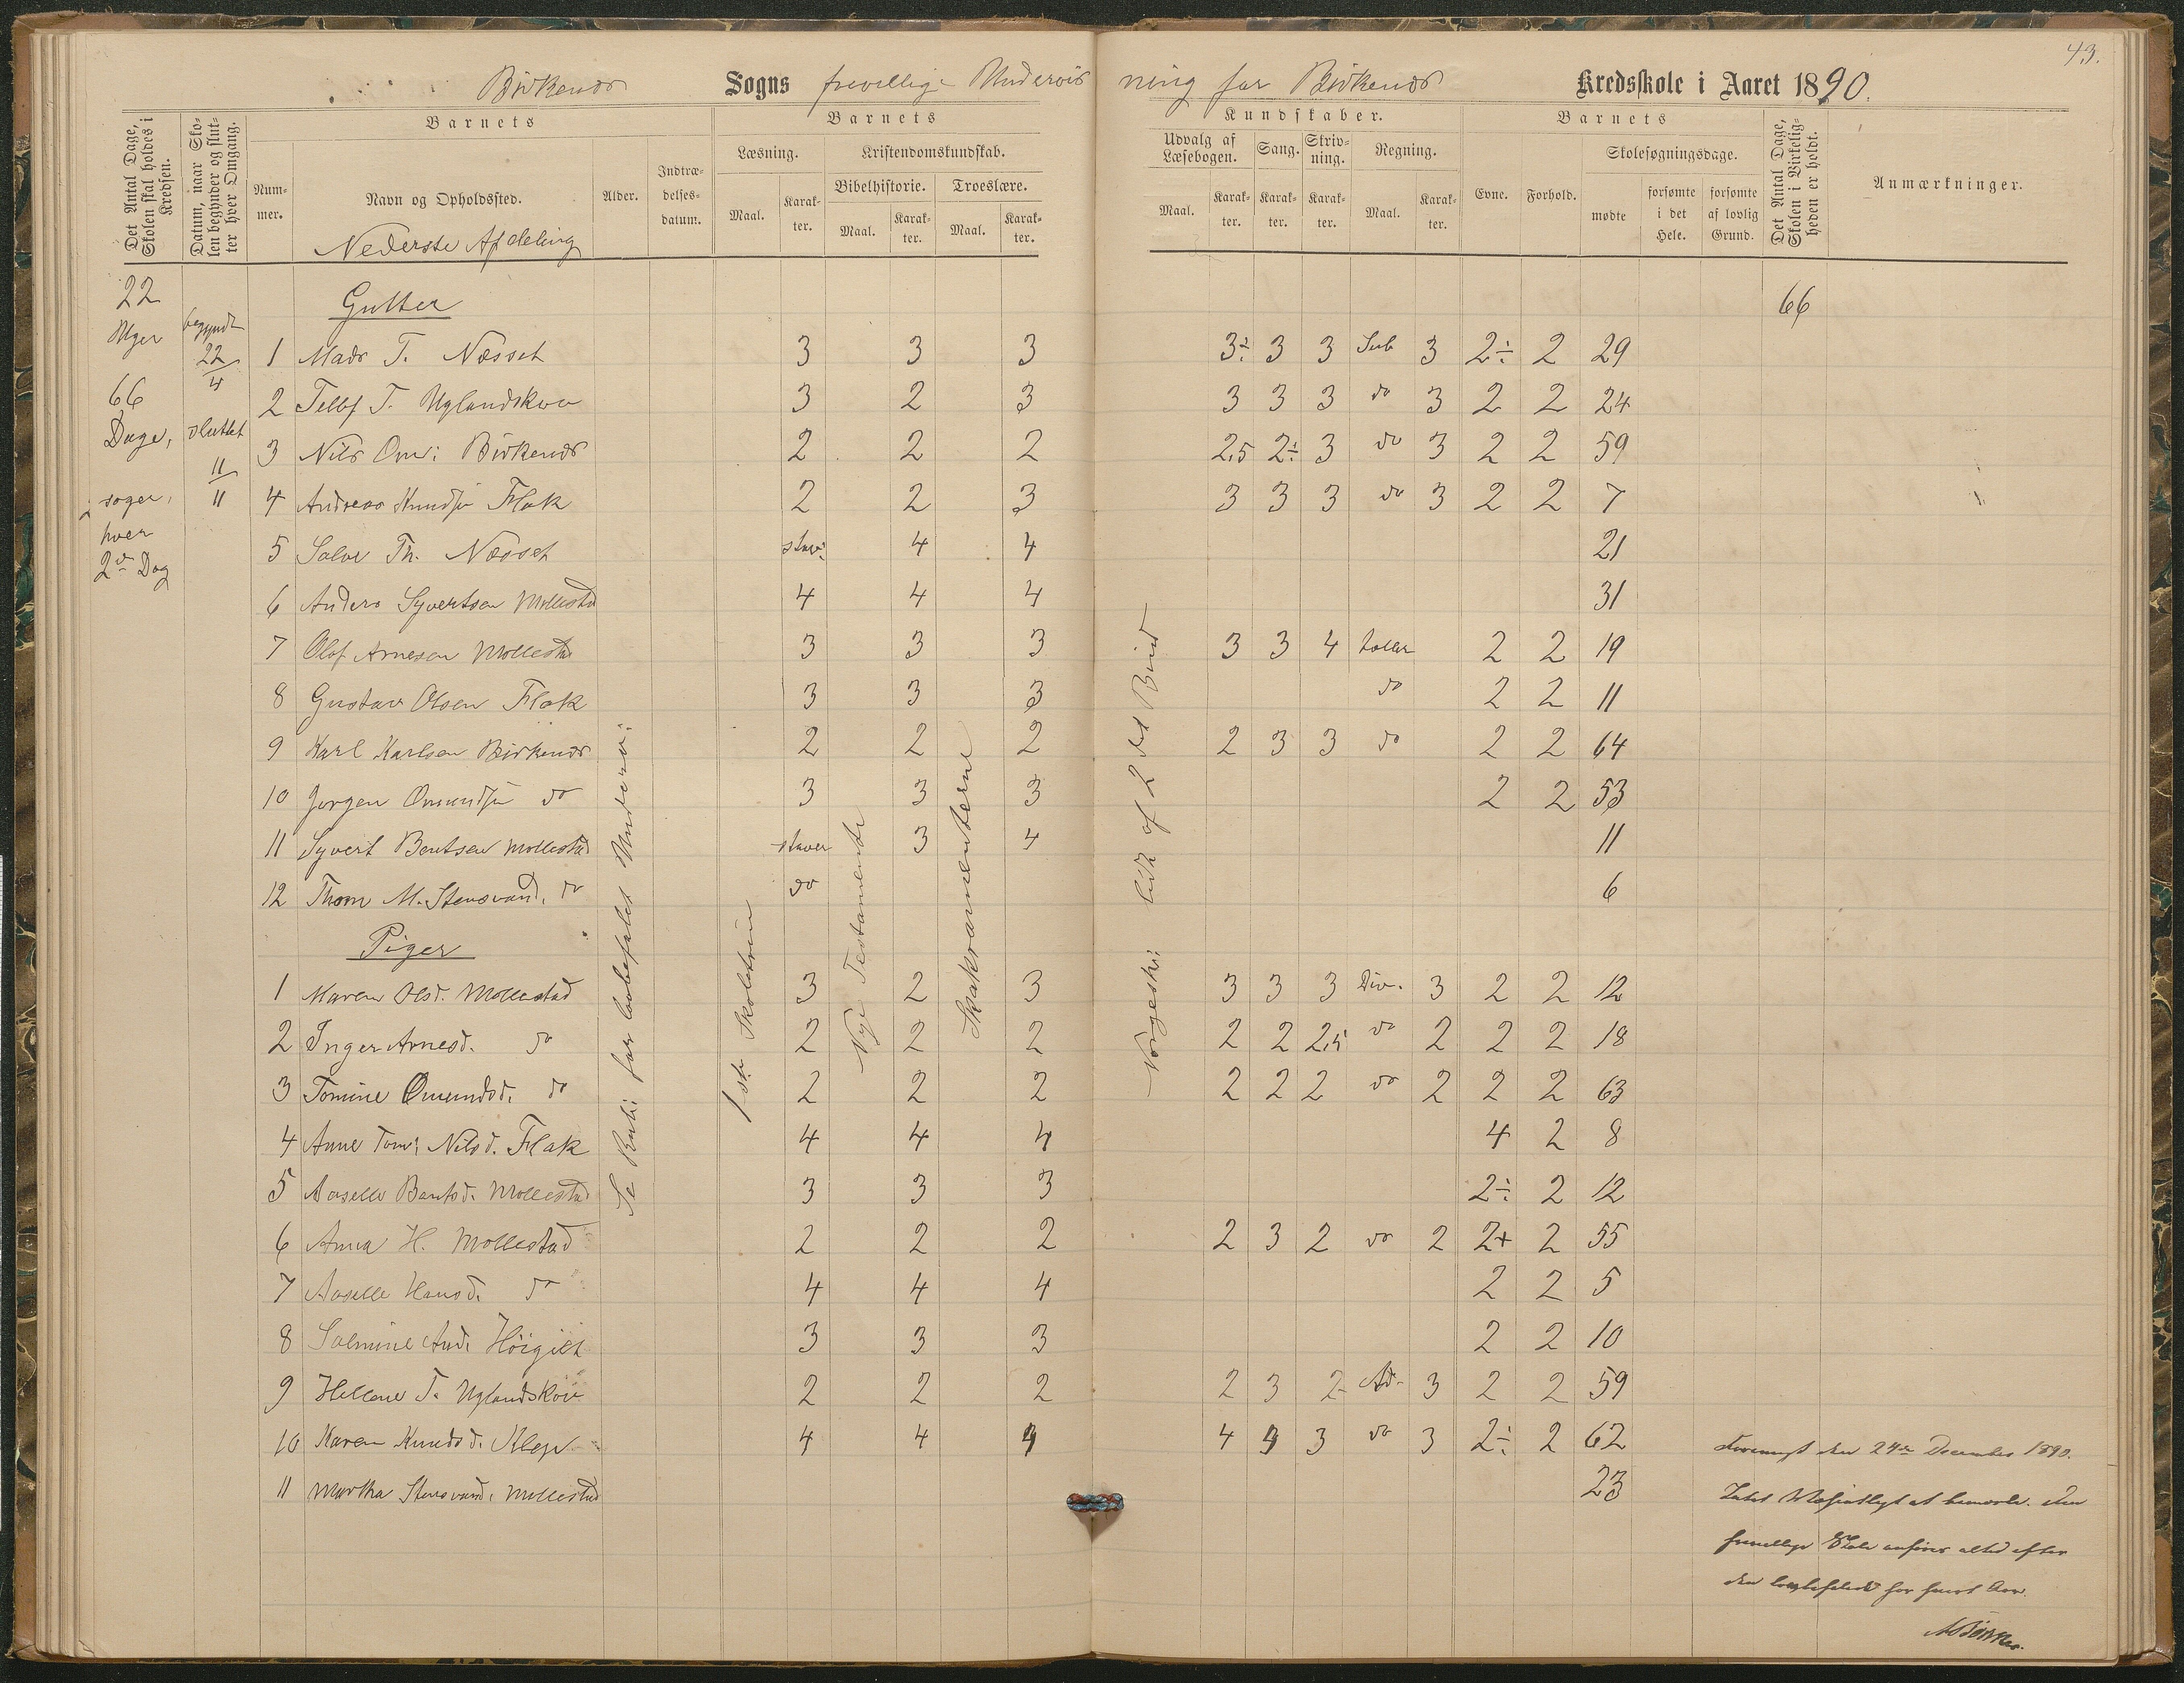 43.
Birkenæs Sogns frivillige Undervisning for Birkenæs Kredsskole i Aaret 1890.
Det Antal Dage, Skolen skal holdes i Kredsen.
Datum, naar Skolen begynder og slutter hver Omgang.
Barnets
Nummer.
Navn og Opholdssted.
Nederste Afdeling
Alder.
Indtrædelsesdatum.
Barnets
Læsning.
Maal.
Karakter.
Kristendomskundskab.
Bibelhistorie.
Maal.
Karakter.
Troeslære.
Maal.
Karakter.
Kundskaber.
Udvalg af Læsebogen.
Maal.
Karakter.
Sang.
Karakter.
Skrivning.
Karakter.
Regning.
Maal.
Karakter.
Barnets
Evne.
Forhold.
Skolesøgningsdage.
mødte
forsømte i det Hele.
forsømte af lovlig Grund.
Det Antal Dage, Skolen i Virkeligheden er holdt.
Anmærkninger.
22
Uger
66
Dage,
søger,
hver
2den Dag
begyndt
22/4
sluttet
11/11
66
Gutter
1 Mads T. Næsset 3 3 3 3÷ 3 3 Sub 3 2÷ 2 29
2 Tellef T. Uglandskov 3 2 3 3 3 3 do 3 2 2 24
3 Nils Om: Birkenæs 2 2 2 2,5 2÷ 3 do 3 2 2 59
4 Andreas Knudsen Flak 2 2 3 3 3 3 do 3 2 2 7
5 Salve Th. Næsset stav: 4 4 21
6 Anders Syvertsen Mollestad 4 4 4 31
7 Olaf Arnesen Mollestad 3 3 3 3 3 4 tæller 2 2 19
8 Gustav Olsen Flak 3 3 3 do 2 2 11
9 Karl Karlsen Birkenæs 2 2 2 2 3 3 do 2 2 64
10 Jørgen Omundsen do 3 3 3 2 2 53
11 Syvert Bentsen Mollestad staver 3 4 11
12 Thom M. Stensvand. do do 6
Piger
1 Maren Olsd. Mollestad 3 2 3 3 3 3 Div. 3 2 2 12
2 Inger Arnesd. do 2 2 2 2 2 2,5 do 2 2 2 18
3 Tomine Omundsd. do 2 2 2 2 2 2 do 2 2 2 63
4 Anne Tom: Nilsd. Flak 4 4 4 4 2 8
5 Aaselle Bentsd. Mollestad 3 3 3 2÷ 2 12
6 Anna H. Mollestad 2 2 2 2 3 2 do 2 2+ 2 55
7 Aaselle Hansd. do 4 4 4 2 2 5
8 Salmine And. Höigilt 3 3 3 2 2 10
9 Hellene T. Uglandskov 2 2 2 2 3 2- Ad- 3 2 2 59
10 Karen Knudsd. Klep 4 4 4 4 4 3 do 3 2÷ 2 62
11 Martha Stensvand. Mollestad 23
Se Rub: for lovbefalet Underv:
1ste Skoletrin
Nye Testamente
Sakramenterne
Norgeshi: lidt af 2det Bind
den 24de December 1890.
Intet at bemærke. Den
frivillige Skole anføres altid efter
den lovbefalede for hvert Aar.